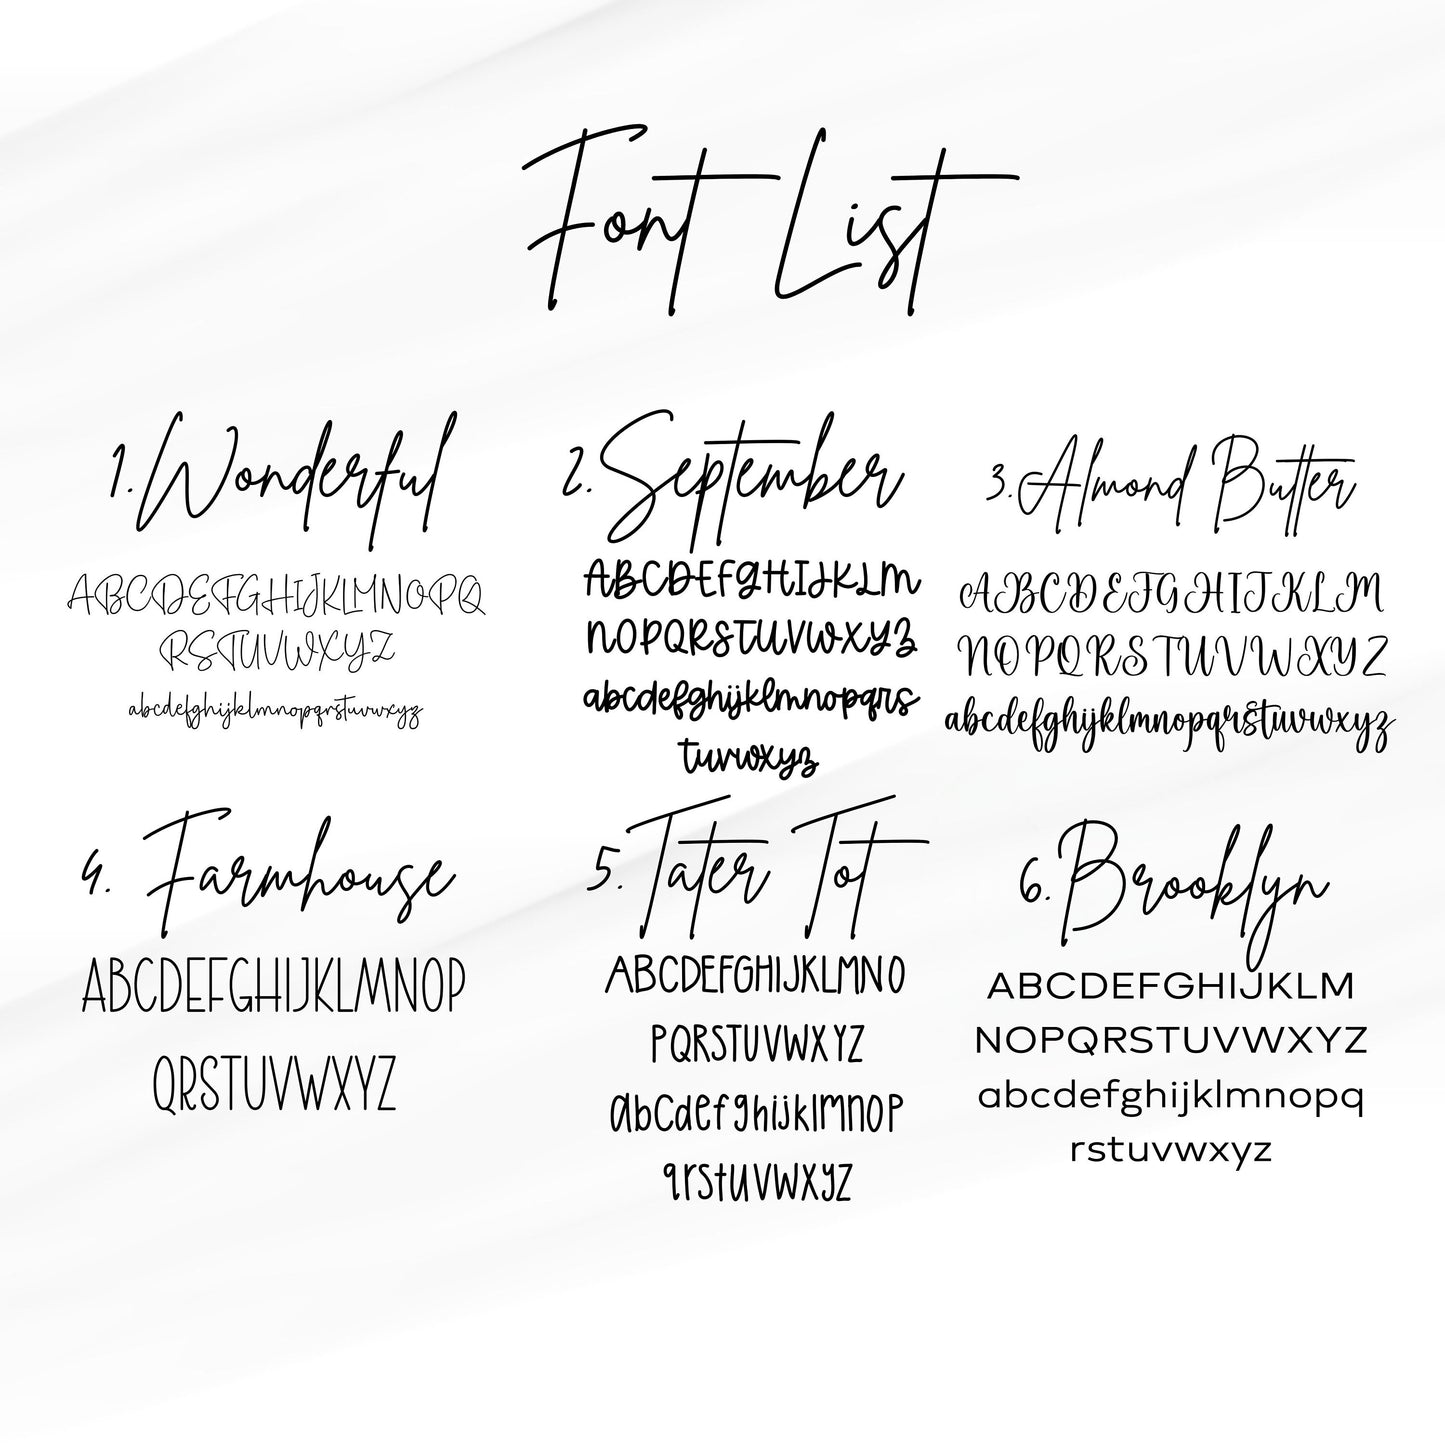 Font List
1. Wonderful
ABCDEFGHIJKLMNOPQ
RSTUVWXYZ
abcdefghijklmnopqrstuvwxyz
2. September
ABCDEFGHIJKLM
NOPQRSTUVWXYZ
abcdefghijklmnopqrs
tuvwxyz
3. Almond Butter
ABCDEFGHIJKLM
NOPQRSTUVWXYZ
abcdefghijklmnopqrstuvwxyz
4. Farmhouse
ABCDEFGHIJKLMNOP
QRSTUVWXYZ
5. Tater Tot
ABCDEFGHIJKLMNO
PQRSTUVWXYZ
abcdefghijklmnop
qrstuvwxyz
6. Brooklyn
ABCDEFGHIJKLM
NOPQRSTUVWXYZ
abcdefghijklmnopq
rstuvwxyz